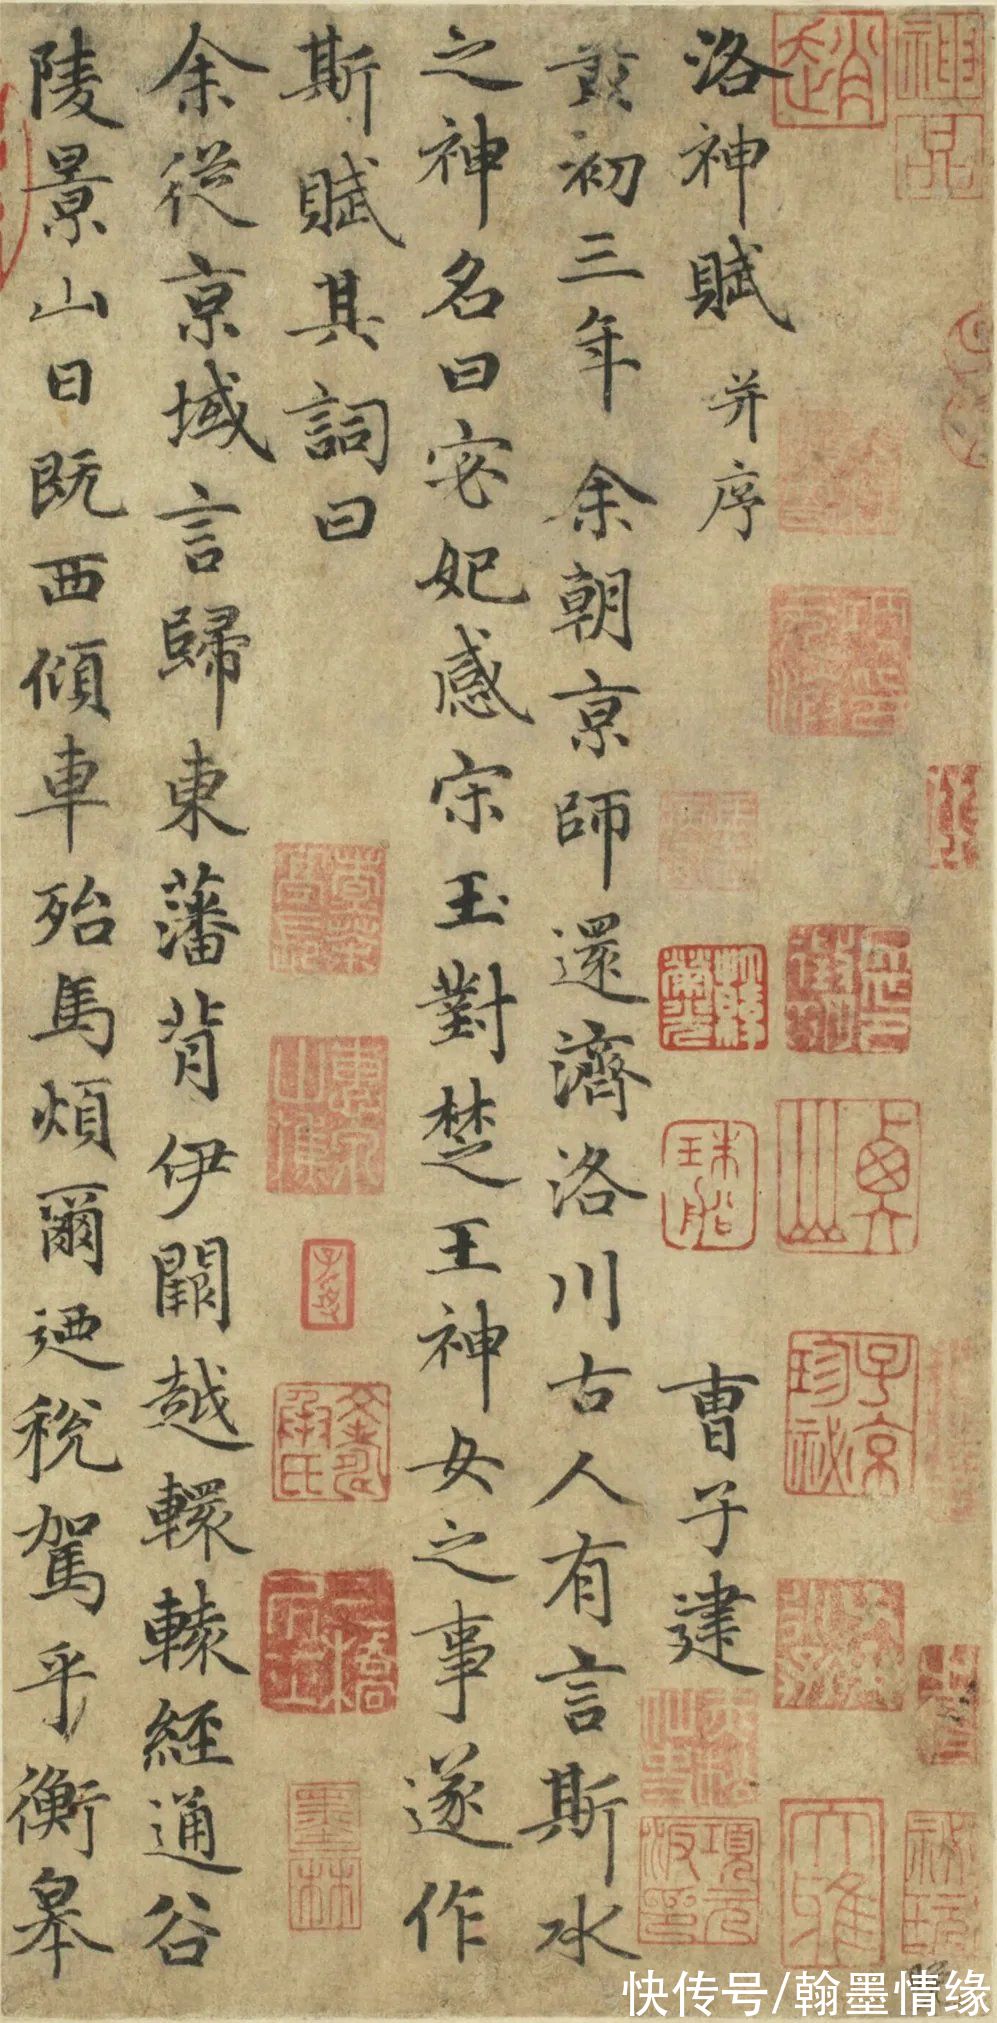 洛神賦 并序 曹子建
黃初三年余朝京師還濟洛川古人有言斯水
之神名曰宓妃感宋玉對楚王神女之事遂作
斯賦其詞曰
余從京域言歸東藩背伊闕越轘轅經通谷
陵景山日既西傾車殆馬煩爾迺稅駕乎衡皋
趙
神品
珠船
子京珍祕
大雅
項元汴印
墨林
快传号/翰墨情缘